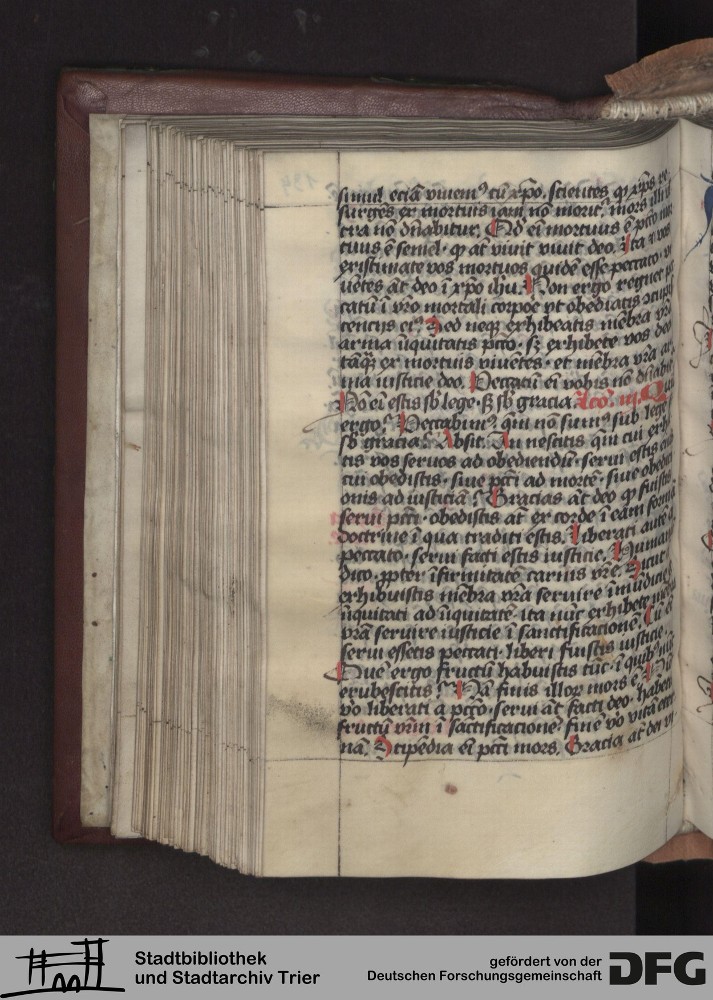 simul eciā viuemꝰ cū xp̄o. scientes ꝙ xp̄s re
surgēs ex mortuis iam nō morit᷑, mors illi vl
tra nō dn̄abitur. Qd̓ ei mortuus ē pctō mor
tuus ē semel. ꝙ at̄ viuit viuit deo. Ita ⁊ vos
existimate vos mortuos quidē esse peccato. vi
uētes at̄ deo ī xp̄o ihu. Non ergo regnet pec
catū ī vr̄o mortali corpoe̓ vt obediatis ꝯcupis
cencijs eiꝰ. Sed neqꝫ exhibeatis mēbra vr̄a
arma īiquitatis pctō. sꝫ exhibete vos deo
tāqꝫ ex mortuis viuētes. et mēbra vr̄a ar
ma iusticie deo. Peccatū ei vobis nō dn̄abit᷑
Nō ei estis sb̓ lege. sꝫ sb̓ gracia. Lcō. iij. Quid
ergo. Peccabimꝰ. qm̄ nō sumꝰ sub lege
sb̓ gracia. Absit. An nescitis qm̄ cui exhi
tis vos seruos ad obediendū. serui estis eius
cui obedistis. siue pcc̄i ad mortē. siue obedici
onis ad iusticiā. Gracias at̄ deo ꝙ fuistis
serui pcc̄i. obedistis at̄ ex corde ī eam formā
doctrine ī qua traditi estis. Liberati autē a
peccato. serui facti estis iusticie. Humanū
dico. ꝓpter īfirmitatē carnis vr̄e. Sicut
exhibuistis mēbra vr̄a seruire īmūdicie ⁊
īiquitati ad īiquitatē. ita nūc exhibete mēbra
vr̄a seruire iusticie ī sanctificacionē. Cū ei
serui essetis peccati. liberi fuistis iusticie.
Quē ergo fructū habuistis tūc. ī quibꝰ nūc
erubescitis. Nā finis illoꝝ mors ē. Nūc
vo liberati a pctō. serui at̄ facti deo. habetis
fructū vrm̄ ī sāctificacionē. finē vo vitā eter
nā. Stipēdia ei pcc̄i mors. Gracia at̄ dei vi
Stadtbibliothek
und Stadtarchiv Trier
gefördert von der
Deutschen Forschungsgemeinschaft
DFG